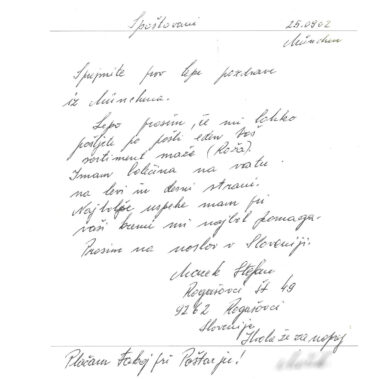 Spoštovani 25.0802
München
Sprejmite prov lepe pozdrave
iz Münchna.
Lepo prosim, če mi lahko
pošljete po pošti eden Vaš
sortiment maže (Roža).
Imam bolečina na vratu
na levi in desni strani.
Najboljše uspehe mam pri
vaši kremi mi najbol pomaga.
Prosim na naslov v Sloveniji.
Marek Štefan
Rogašovci št 49
9262 Rogašovci
Slovenija
Hvala že za naprej
Plačam takoj pri Poštarju!